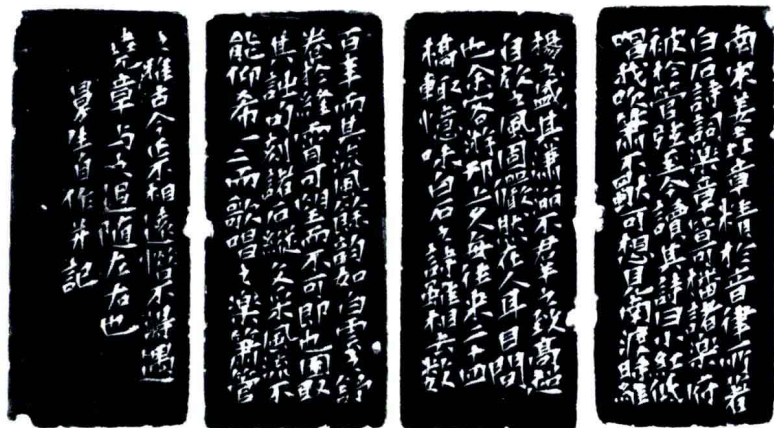 南宋姜堯章精於音律所著
白石詩詞樂章皆可播諸樂府
被於管弦至今讀其詩曰小紅低
唱我吹簫不獨可想見南渡時維
揚之盛其瀟洒不群之致高超
自放之風固儼然在人耳目間
也余客游邗上久每往來二十四
橋輒憶味白石之詩雖相去數
百年而其流風餘韻如白雲之舒
卷於絳霄可望而不可即也因取
其詩句刻諸石縱文采風流不
能仰希一二而歌唱之樂簫管
之雅古今佀不相遠惜不得遇
堯章与之追随左右也
自作并記